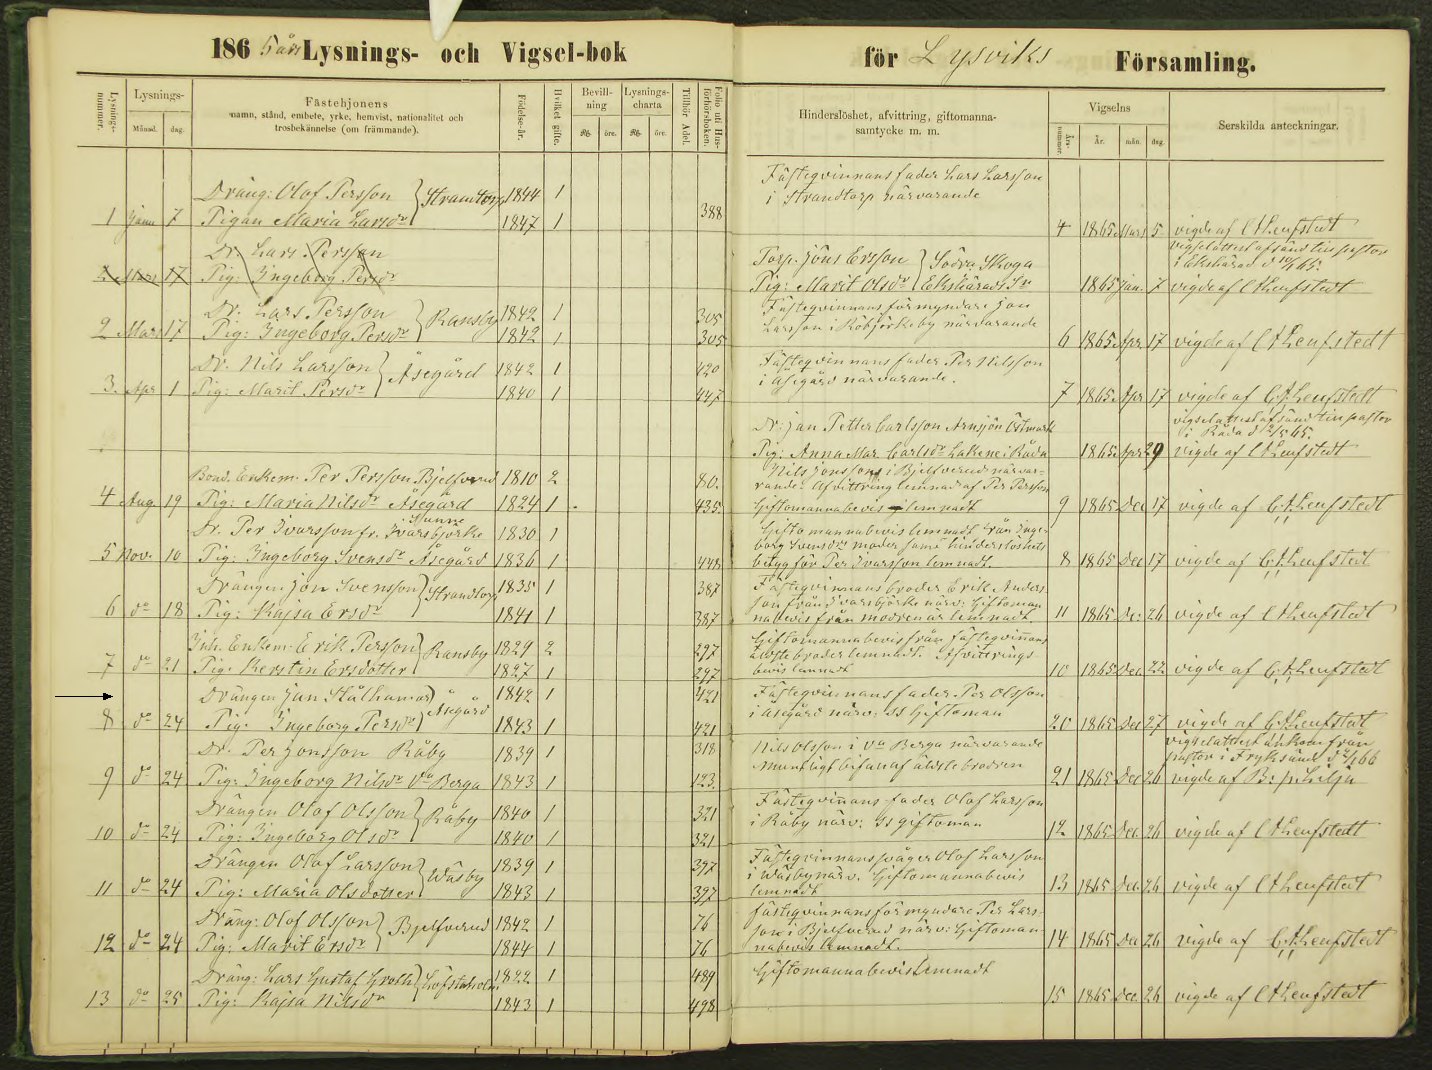 186 5 års Lysnings- och Vigsel-bok
för Lysviks Församling.
Lysnings-nummer.
Lysnings-
Månad.
dag.
Fästehjonens
namn, stånd, embete, yrke, hemvist, nationalitet och
trosbekännelse (om främmande).
Födelse-år.
Hvilket gifte.
Bevill-
ning
Rdr
öre.
Lysnings-
charta
Rdr
öre.
Tillhör Adel.
Folio uti Hus-
förhörsboken.
Hinderslöshet, afvittring, giftomanna-
samtycke m. m.
Vigselns
Års-nummer.
År.
mån.
dag.
Serskilda anteckningar.
Dräng: Olof Persson 1844 1
Strandtorp
1 Janu 7 Pigan Maria Larsdr 1847 1 388
Fästeqvinnans fader Lars Larsson
i Strandtorp närvarande
4 1865 Mars 5 vigde af C A Leufstedt
Dr. Lars Persson
2 Mars 17 Pig: Ingeborg Persdr
Torp. Jöns Ersson Södra Skoga
Pig: Marit Olsdr Ekshärads Sn
1865 Jan. 7 vigde af C A Leufstedt
vigselattest afsänd till pastor
i Ekshärad d
Dr. Lars Persson Ransby 1842 1 305
2 Mars 17 Pig: Ingeborg Persdr 1842 1 305
Fästeqvinnans förmyndare Jan
Larsson i närvarande
6 1865 Apr. 17 vigde af C A Leufstedt
Dr. Nils Larsson Åsegård 1842 1 420
3. Apr 1 Pig: Marit Persdr 1840 1 447
Fästeqvinnans fader Per Nilsson
i Åsegård närvarande.
7 1865 Apr 17 vigde af C. A. Leufstedt
Dr: Jan Petter Carlsson Arnsjön Östmark
Pig: Anna Mar. Carlsdr Lakene i Råda
1865 Apr 29 vigde af C A Leufstedt
vigselattest afsänd till pastor
i Råda d 2/5 65.
Bond. Enkem. Per Persson Bjelfverud 1810 2 80.
4 Aug 19 Pig: Maria Nilsdr Åsegård 1824 1 435
Nils Jonsson i Bjelfverud närva-
rande. Afvittring lemnad af Per Persson
Giftomannabevis lemnadt
9 1865 Dec 17 vigde af C. A. Leufstedt
Dr. Per Ivarsson fr. Ivarsbjörke Sunne 1830 1
5 Nov. 10 Pig: Ingeborg Svensdr Åsegård 1836 1
Giftomannabevis lemnadt från Inge-
borg Svensdrs moder samt hinderslöshets
betyg för Per Ivarsson lemnadt.
8 1865 Dec 17 vigde af C. A. Leufstedt
Drängen Jon Svensson Strandtorp 1835 1 387
6 do 18 Pig: Kajsa Ersdr 1841 1 387
Fästeqvinnans broder Erik Anders-
son från Ivarsbjörke närv: Giftoman
nabevis från modren är lemnadt.
11 1865 De: 26 vigde af C A Leufstedt
Inh. Enkem: Erik Persson Ransby 1829 2 297
7 do 21 Pig: Kerstin Ersdotter 1827 1 297
Giftomannabevis från fästeqvinnans
äldste broder lemnadt. Afvitrings
bevis lemnadt
10 1865 Dec. 22 vigde af C. A. Leufstedt
Drängen Jan Stålhamar Åsegård 1842 1 421
8 do 24 Pig: Ingeborg Persdr 1843 1 421
Fästeqvinnans fader Per Olsson
i Åsegård närv: ss Giftoman
20 1865 Dec 27 vigde af C. A. Leufstedt
Dr. Per Jonsson Råby 1839 1 318
9 do 24 Pig: Ingeborg Nilsdr Va Berga 1843 1 123.
Nils Olsson i Va Berga närvarande
Muntligt bifall af äldste brodren
21 1865 Dec 26 vigde af B: p: Lilja
vigselattest ankom från
pastor i Fryksände d
Drängen Olof Olsson Råby 1840 1 321
10 do 24 Pig: Ingeborg Olsdr 1840 1 321
Fästeqvinnans fader Olof Larsson
i Råby närv: ss giftoman
12 1865 Dec. 26 vigde af C A Leufstedt
Drängen Olof Larsson Wäsby 1839 1 397
11 do 24 Pig: Maria Olsdotter 1843 1 397
Fästeqvinnans svåger Olof Larsson
i Wäsby närv. Giftomannabevis
lemnadt
13 1865 Dec. 26 vigde af C A Leufstedt
Dräng: Olof Olsson Bjelfverud 1842 1 76
12 do 24 Pig: Marit Ersdr 1844 1 76
fästeqvinnans förmyndare Per Lars-
son i Bjelfverud närv: Giftoman
nabevis lemnadt.
14 1865 Dec 26 vigde af C. A. Leufstedt
Dräng: Lars Gustaf Groth Löfstaholm 1822 1 489
13 do 25 Pig: Kajsa Nilsdr 1843 1 498
Giftomannabevis lemnadt
15 1865 Dec. 26 vigde af C A Leufstedt